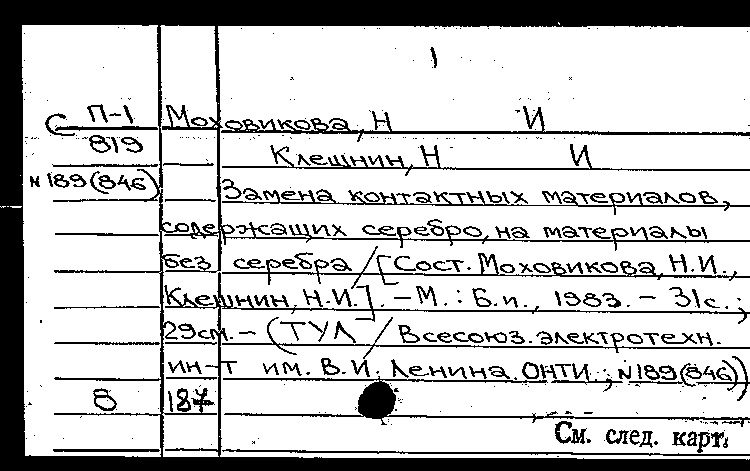 1
С П-1 Моховикова, Н И
819
Клешнин, Н И
N 189(846) Замена контактных материалов,
содержащих серебро, на материалы
без серебра / [Сост. Моховикова, Н.И.,
Клешнин, Н.И.]. – М. : Б.и., 1983. – 31с. ;
29см. – (ТУЛ / Всесоюз. электротехн.
ин-т им. В.И. Ленина. ОНТИ. ; N189(846))
8 187
См. след. карт.